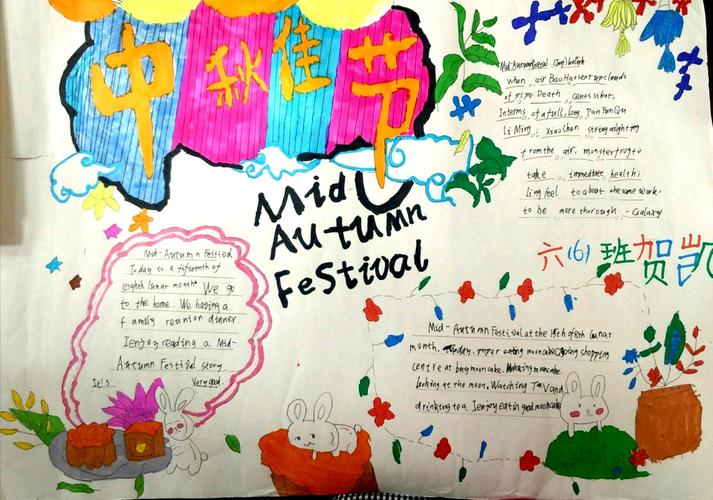 中秋佳节
Mid
Autumn
Festival
Mid-Autumn Festival (Tang)
when air BaoHaosent up clouds
of pipe Death cents scent,
Interms of a full, long PanYunQu
Li Ming XiaoChan string alighting
from the air, monster frug to
take immediate healthi
Ling feel to about the same work.
to be more thorough - Galaxy
六(6)班贺凯
Mid-Autumn Festival
Today is a fifteenth of
eighth lunar month We go
to the home. We having a
family reunion dinner
I enjoy reading a Mid-
Autumn Festival story.
It's Very good.
Mid-Autumn Festival at the 15th of 8th lunar
month. paper eating mooncake Going shopping
centre at buy mooncake. Making mooncake.
looking at the moon. Watching T.V and
drinking tea. I enjoy eat in good mooncake